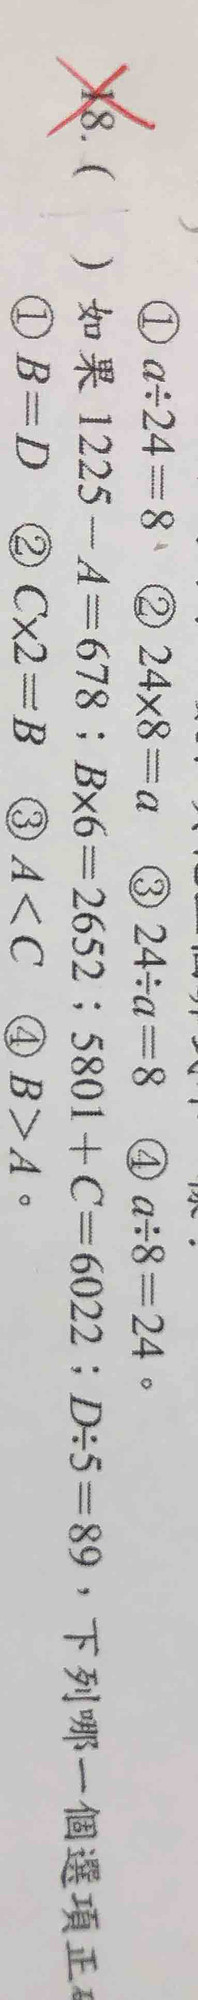 ① a÷24=8、 ② 24×8=a ③ 24÷a=8 ④ a÷8=24。
18. ( ) 如果 1225-A=678；B×6=2652；5801+C=6022；D÷5=89，下列哪一個選項正
① B=D ② C×2=B ③ A<C ④ B>A。